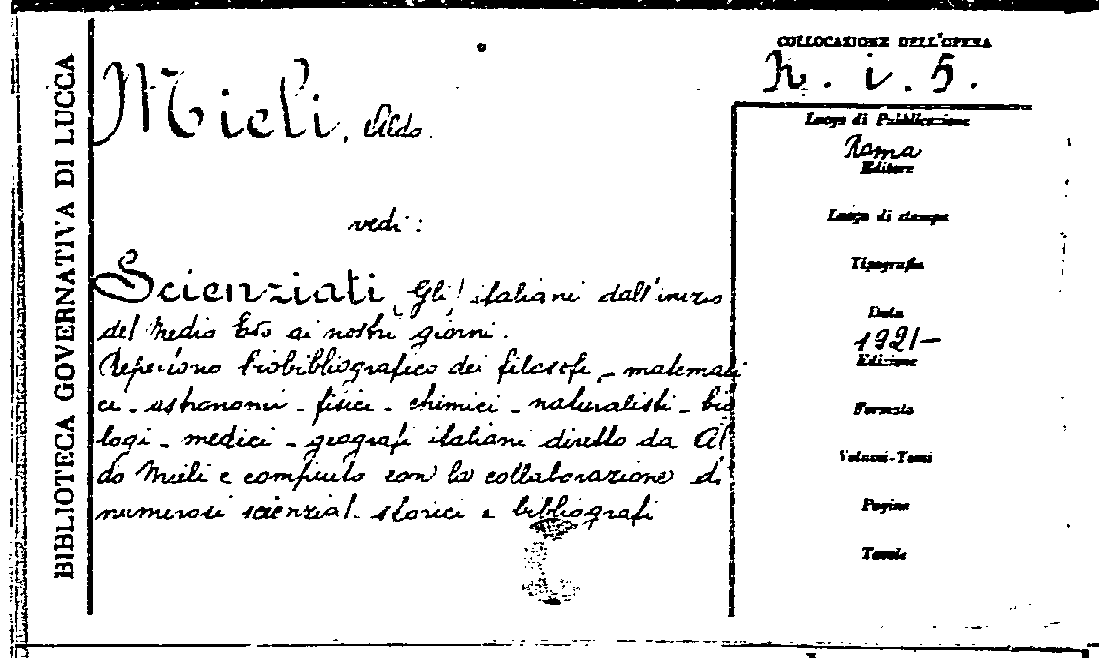 BIBLIOTECA GOVERNATIVA DI LUCCA
Mieli, Aldo.
vedi:
Scienziati (Gli) italiani dall'inizio
del Medio Evo ai nostri giorni.
Repertorio biobibliografico dei filosofi - matemati
ci - astronomi - fisici - chimici - naturalisti - bio
logi - medici - geografi italiani diretto da Al
do Mieli e compiuto con la collaborazione di
numerosi scienziat. storici e bibliografi
COLLOCAZIONE DELL'OPERA
h. i. 5.
Luogo di Pubblicazione
Roma
Editore
Luogo di stampa
Tipografia
Data
1921-
Edizione
Formato
Volumi-Tomi
Pagine
Tavole